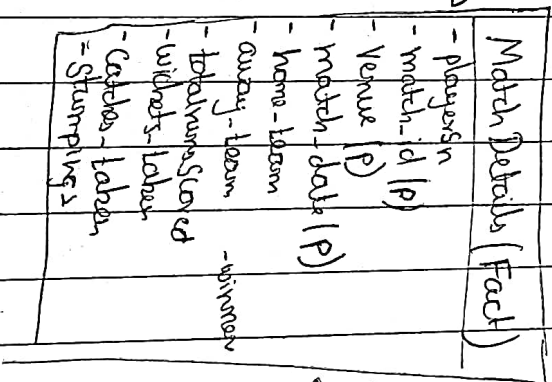 Match Details (Fact)
- playersn
- match_id (p)
- venue (p)
- match_date (p)
- home-team
- away-team
- winner
- totalrunsscored
- wickets-taken
- catches-taken
- stumpings